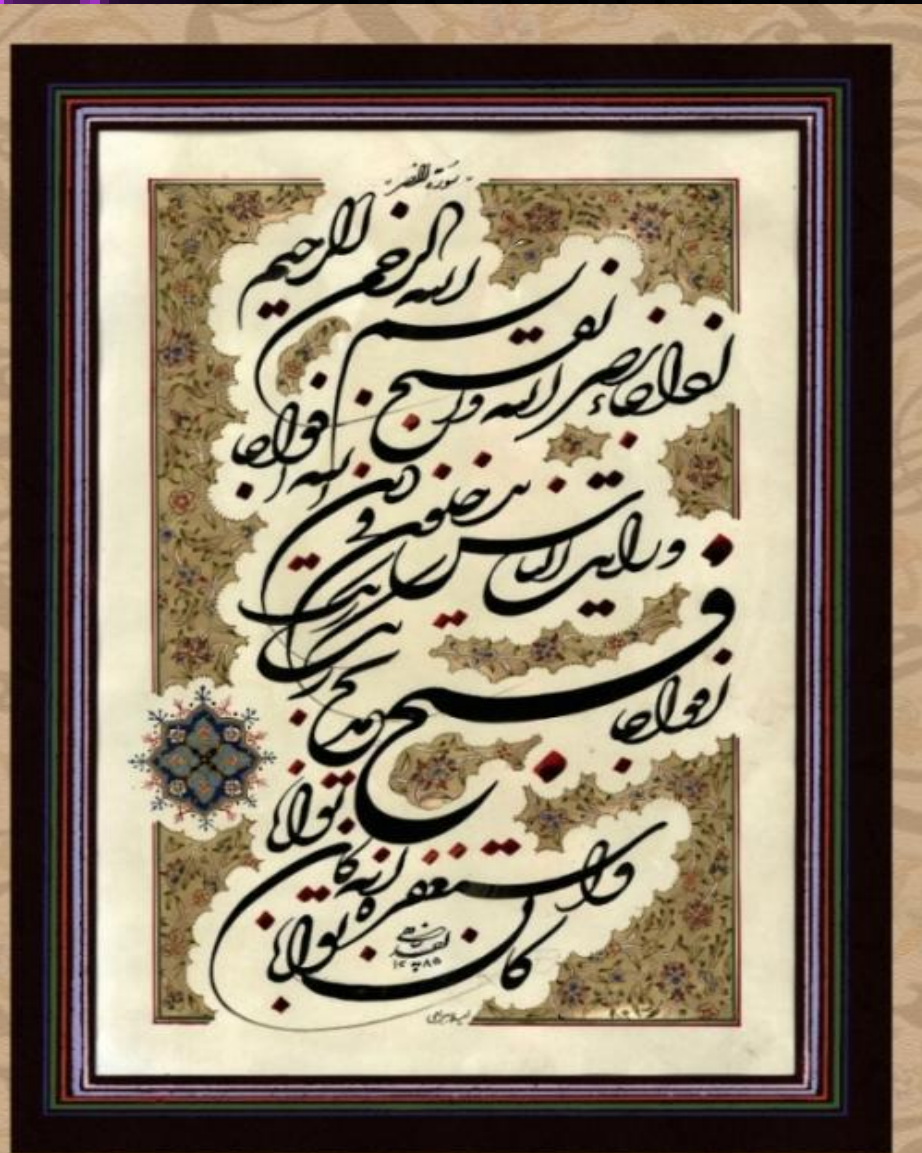 سورة النصر
بسم الله الرحمن الرحيم
اذا جاء نصر الله والفتح
ورايت الناس يدخلون في دين الله افواجا
افواجا
فسبح بحمد ربك
واستغفره انه كان توابا
كان توابا